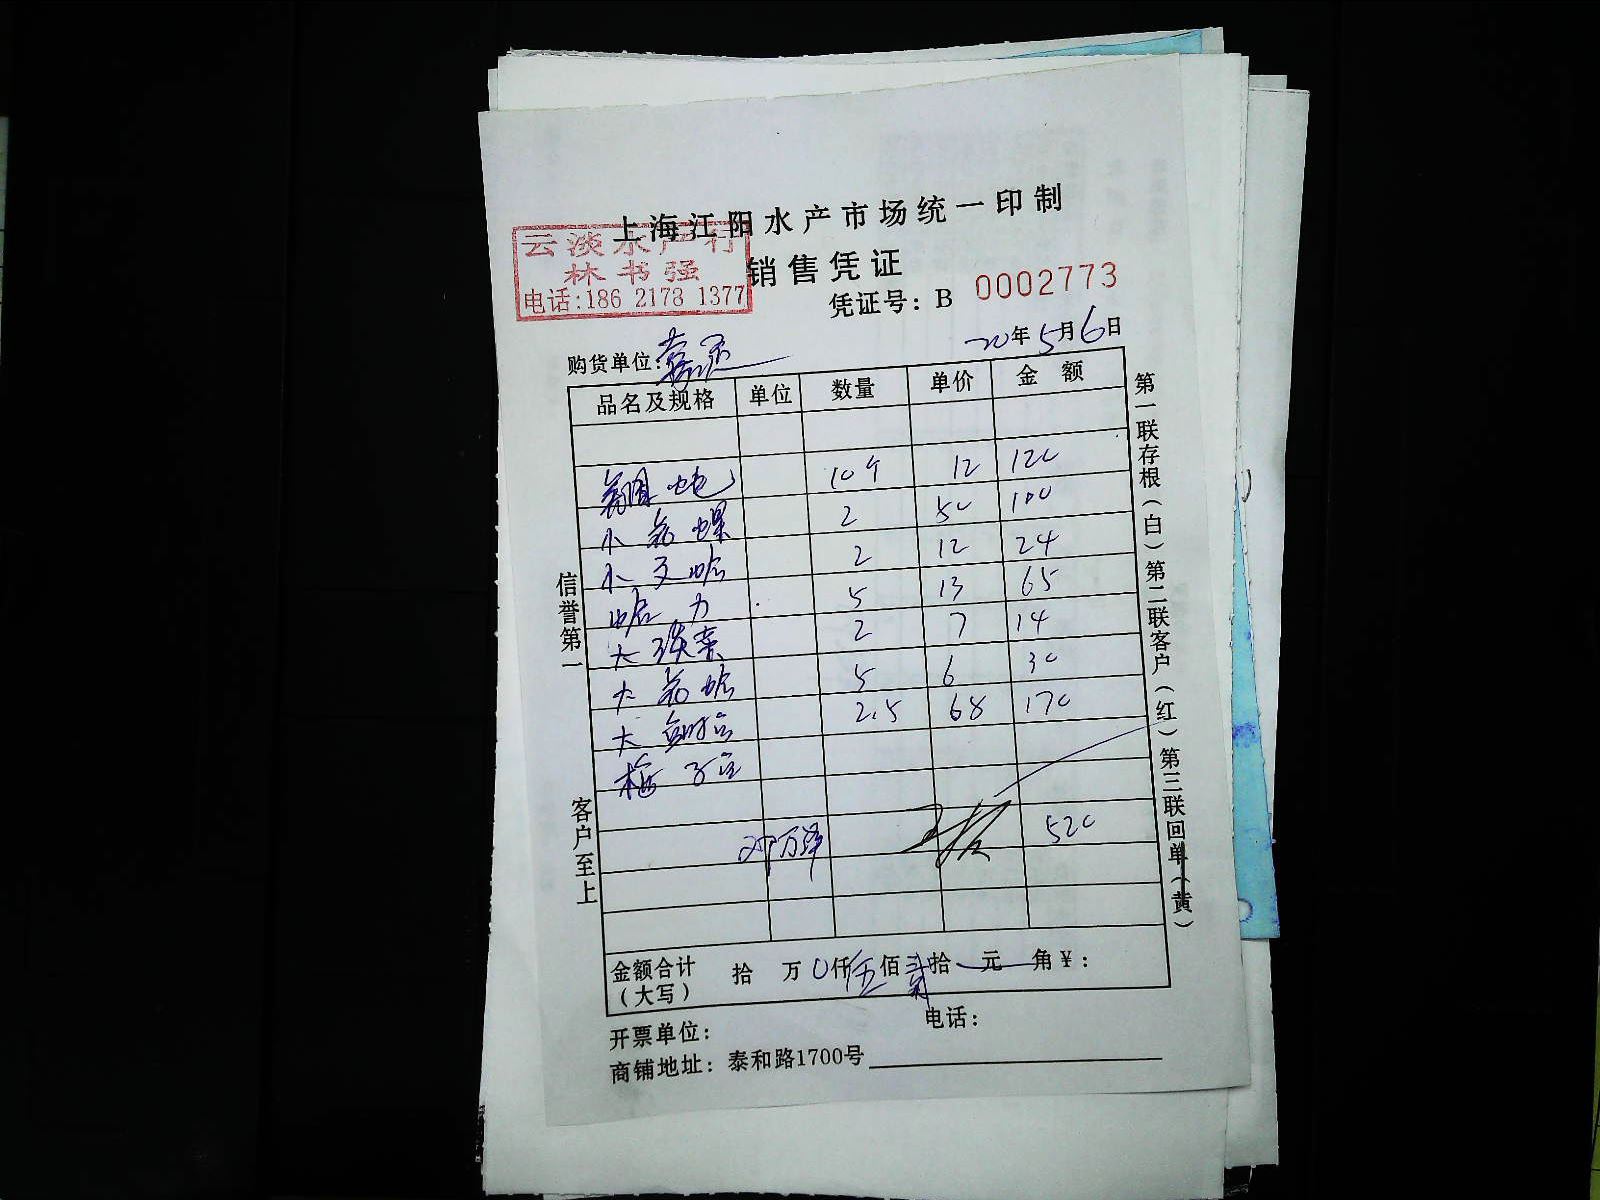 上海江阳水产市场统一印制
云淡水产行
林书强
电话:186 2178 1377
销售凭证
凭证号: B 0002773
购货单位:
20年5月6日
品名及规格 单位 数量 单价 金额
10个 12 120
小 螺 2 50 100
小 文蛤 2 12 24
蛤 力 5 13 65
大 2 7 14
大 蛤 5 6 30
大 2.5 68 170
梅子
邓万泽 520
金额合计(大写) 拾 万 0仟 伍佰 贰拾 元 角 ¥:
开票单位: 电话:
商铺地址: 泰和路1700号
信誉第一 客户至上
第一联存根(白)第二联客户(红)第三联回单(黄)